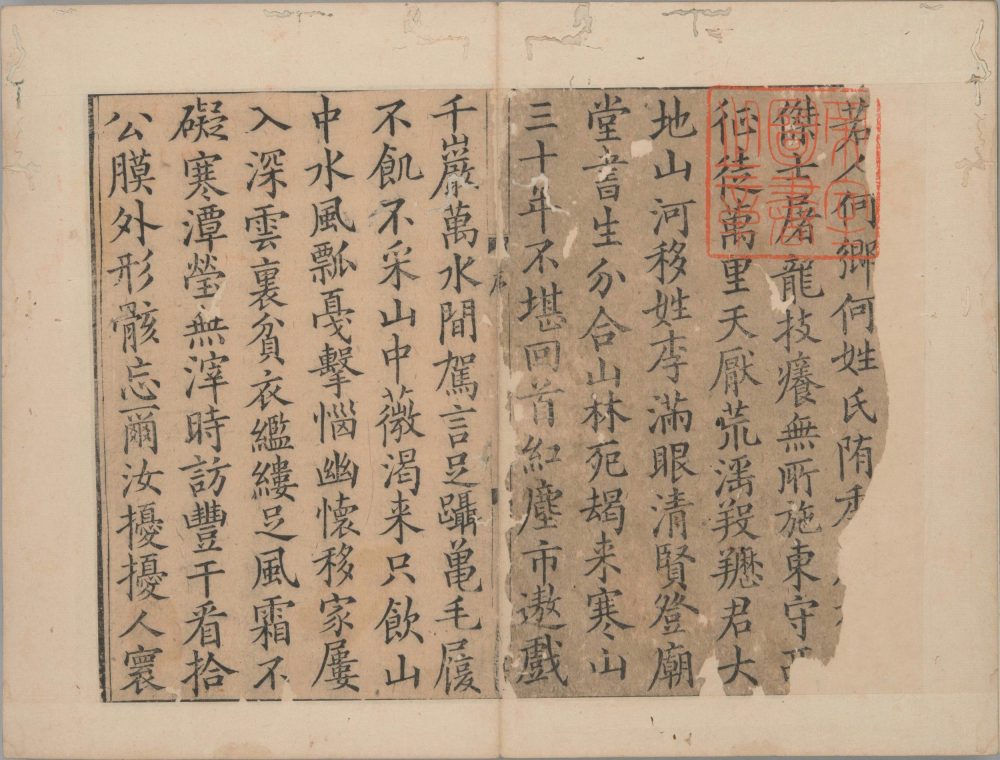 若人何鄉何姓氏隋
傑士屠龍技癢無所施東守
征徒萬里天厭荒滛羖䍽君大
地山河移姓李滿眼清賢登廟
堂書生分合山林死朅来寒山
三十年不堪回首紅塵市遨戲
序
千巖萬水間駕言足躡亀毛屐
不飢不采山中薇渴来只飲山
中水風瓢戛擊惱幽懷移家屢
入深雲裏貧衣繿縷足風霜不
礙寒潭瑩無滓時訪豐干看拾
公膜外形骸忘爾汝擾擾人寰